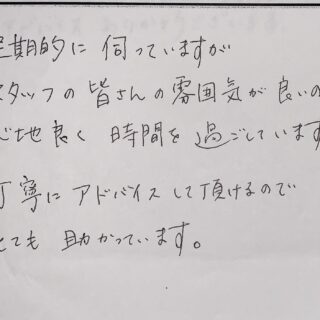 定期的に 伺っていますが
スタッフの皆さんの雰囲気が良いの
心地良く 時間を過ごしています
丁寧にアドバイスして頂けるので
とても 助かっています。